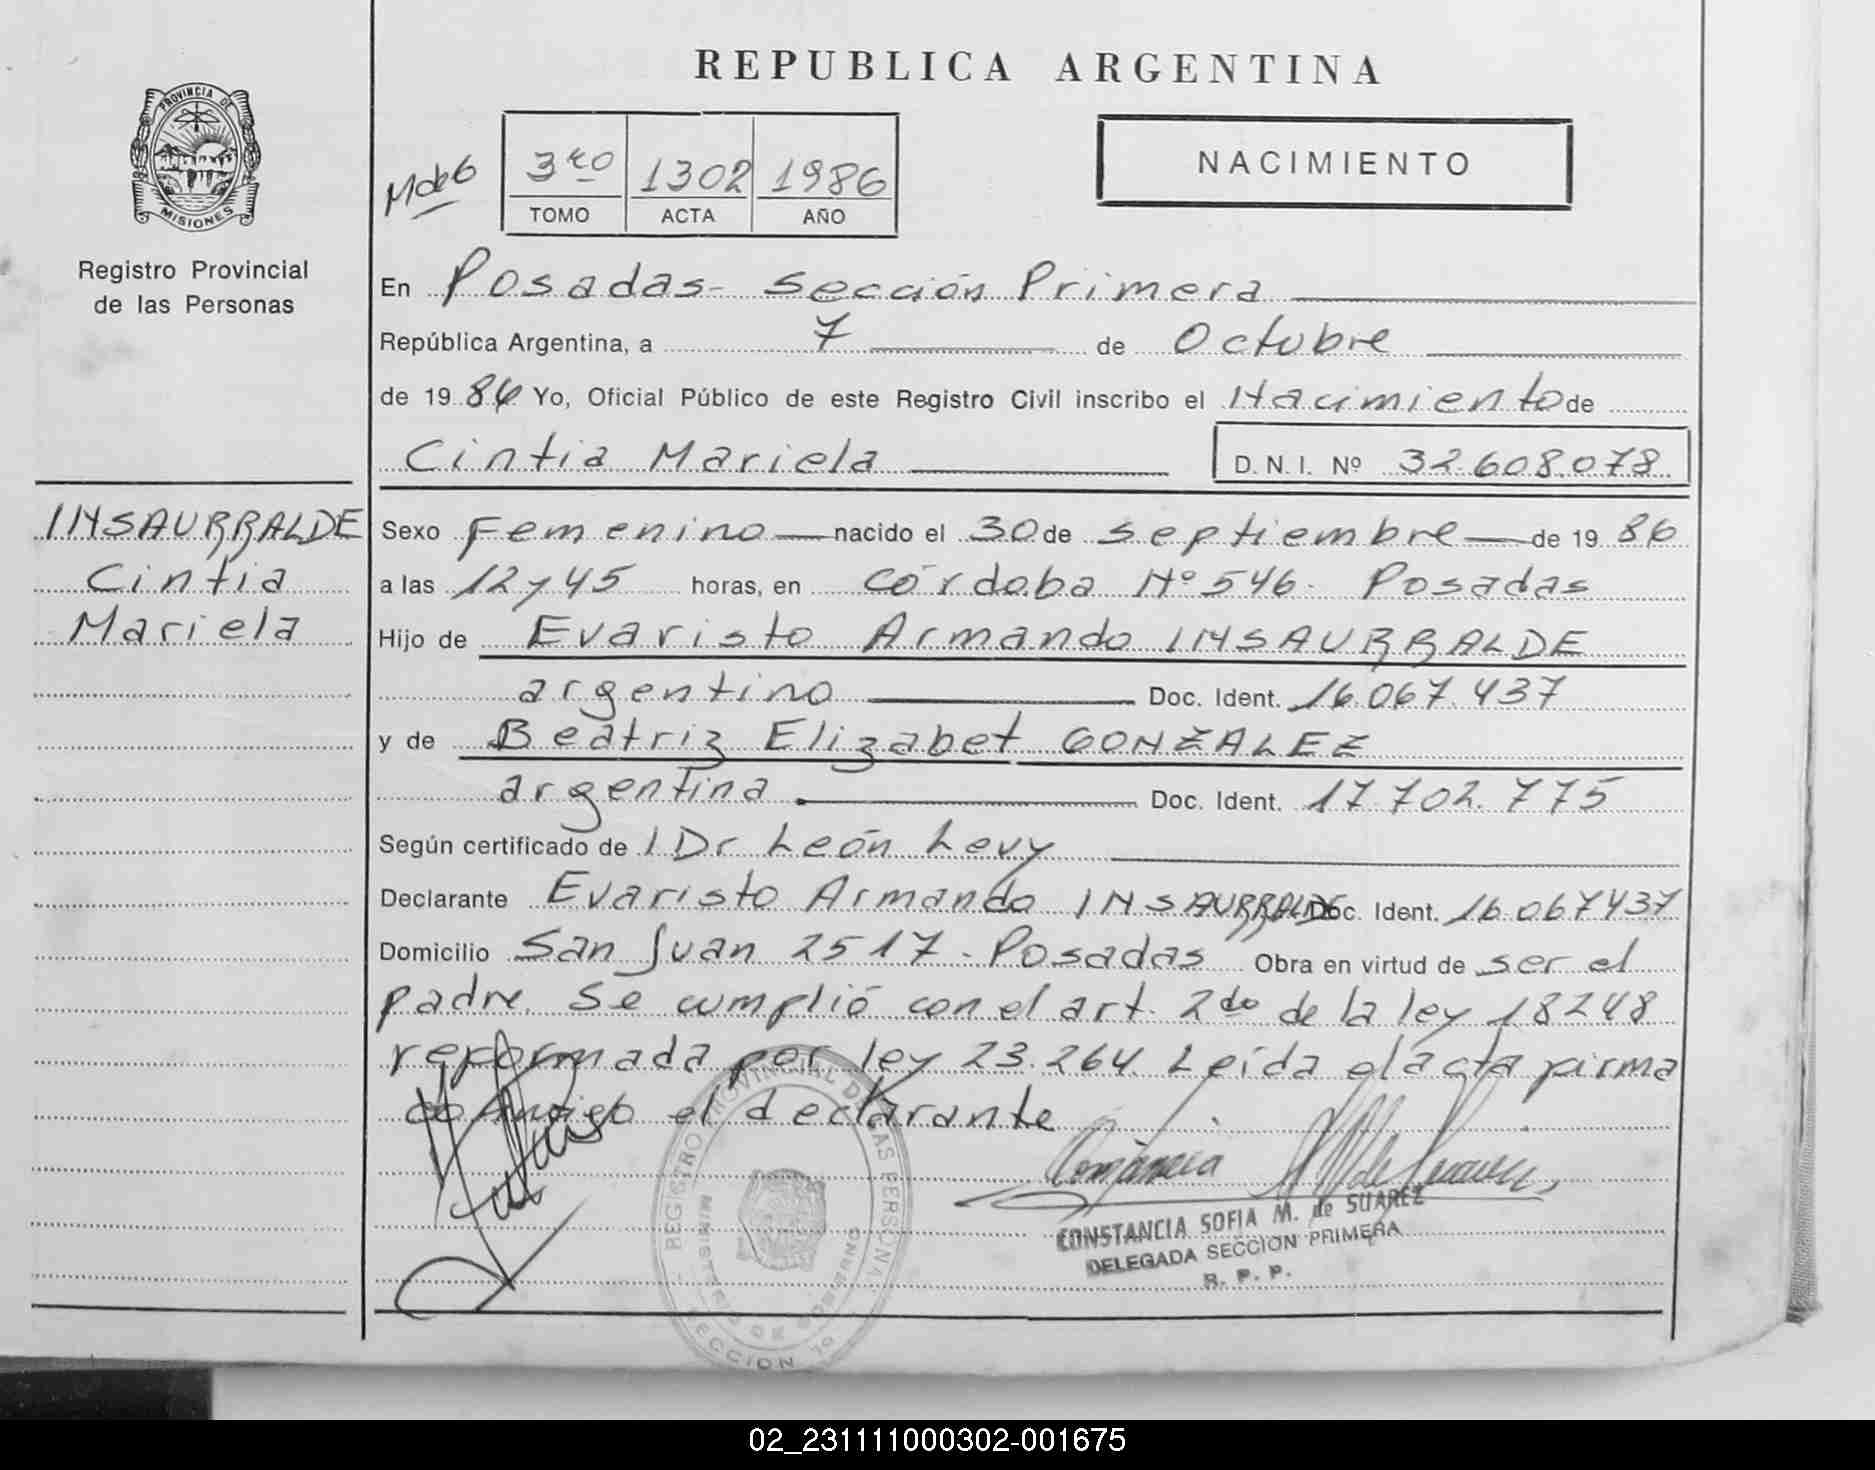 REPUBLICA ARGENTINA
PROVINCIA DE
MISIONES
Registro Provincial
de las Personas
3ro 1302 1986
TOMO ACTA AÑO
NACIMIENTO
En Posadas - Sección Primera
República Argentina, a 7 de Octubre
de 1986 Yo, Oficial Público de este Registro Civil inscribo el Nacimiento de
Cintia Mariela D. N. I. Nº 32.608.078
INSAURRALDE
Cintia
Mariela
Sexo Femenino nacido el 30 de septiembre de 1986
a las 12 y 45 horas, en Córdoba Nº 546 - Posadas
Hijo de Evaristo Armando INSAURRALDE
argentino Doc. Ident. 16.067.437
y de Beatriz Elizabet GONZALEZ
argentina Doc. Ident. 17.702.775
Según certificado de l Dr León Levy
Declarante Evaristo Armando INSAURRALDE Doc. Ident. 16.067437
Domicilio San Juan 2517 - Posadas Obra en virtud de ser el
padre. Se cumplió con el art. 2do de la ley 18248
reformada por ley 23.264. Leída el acta firma
conmigo el declarante
REGISTRO PROVINCIAL DE LAS PERSONAS
MINISTERIO DE GOBIERNO
SECCION 1º
CONSTANCIA SOFIA M. de SUAREZ
DELEGADA SECCION PRIMERA
R. P. P.
02_231111000302-001675